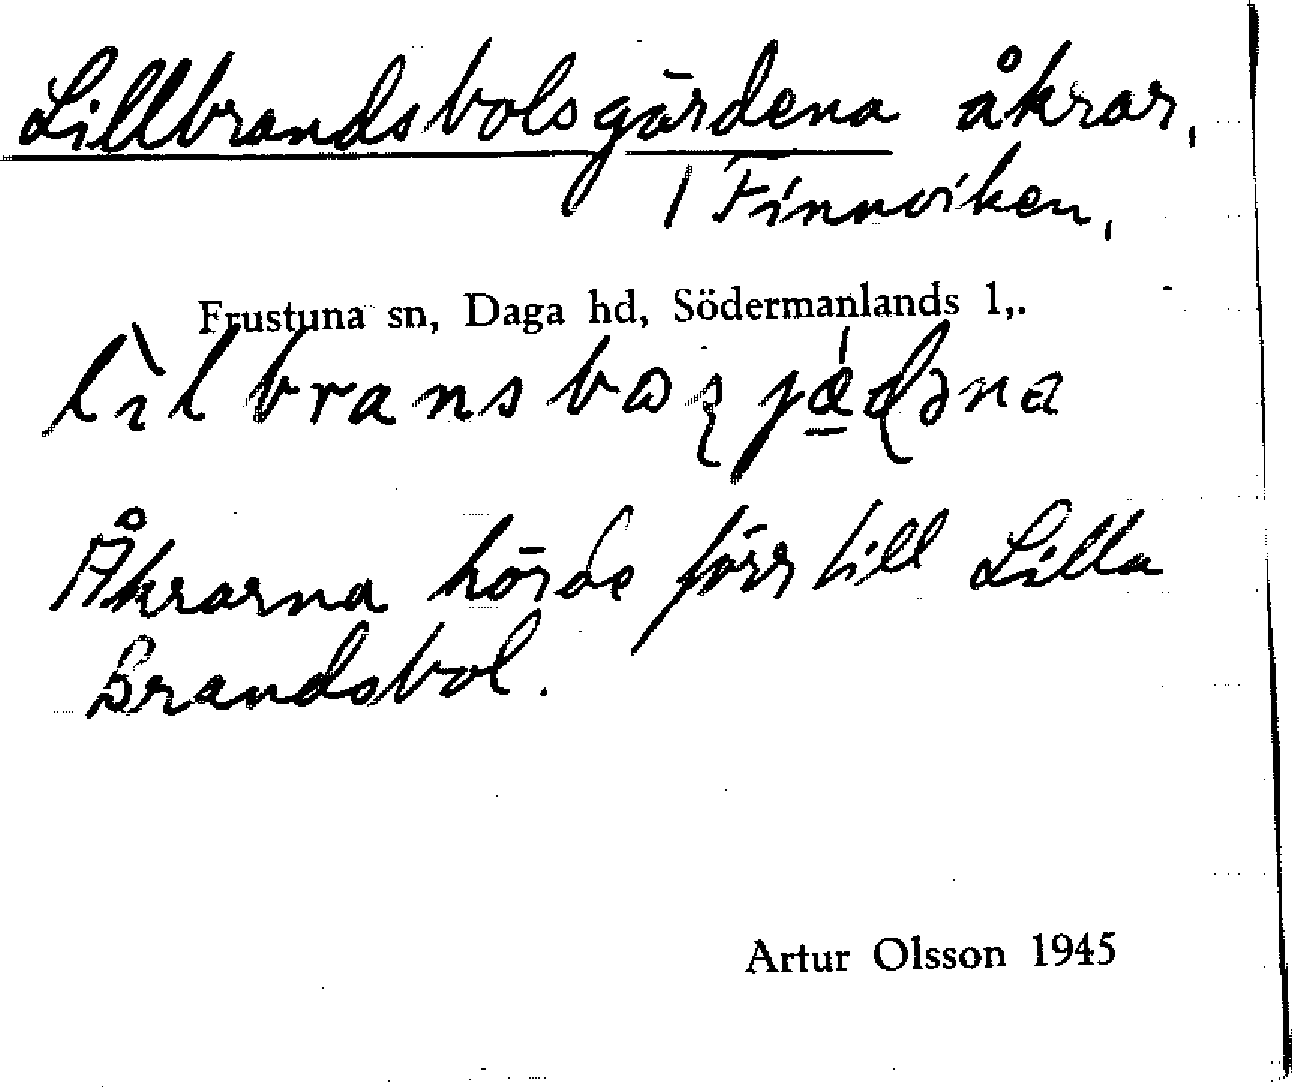 Lillbrandsbolsgärdena åkrar,
/ Finnviken,
Frustuna sn, Daga hd, Södermanlands l,.
Åkrarna hörde förr till Lilla
Brandsbol.
Artur Olsson 1945